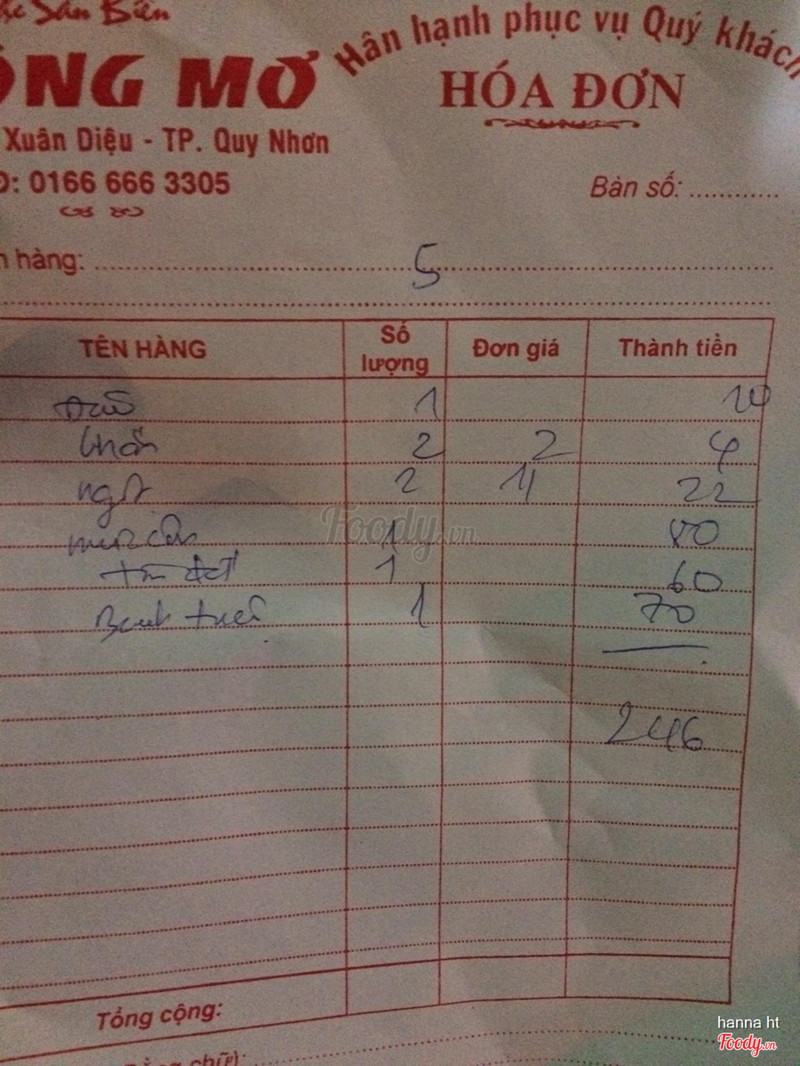 Sản Biển
ÔNG MƠ
Hân hạnh phục vụ Quý khách
HÓA ĐƠN
Xuân Diệu - TP. Quy Nhơn
Đ: 0166 666 3305
Bàn số:
hàng: 5
TÊN HÀNG Số lượng Đơn giá Thành tiền
1 10
khăn 2 2 4
ngọt 2 11 22
1 80
1 60
1 70
246
Tổng cộng:
Bằng chữ):
Foody.vn
hanna ht
Foody.vn